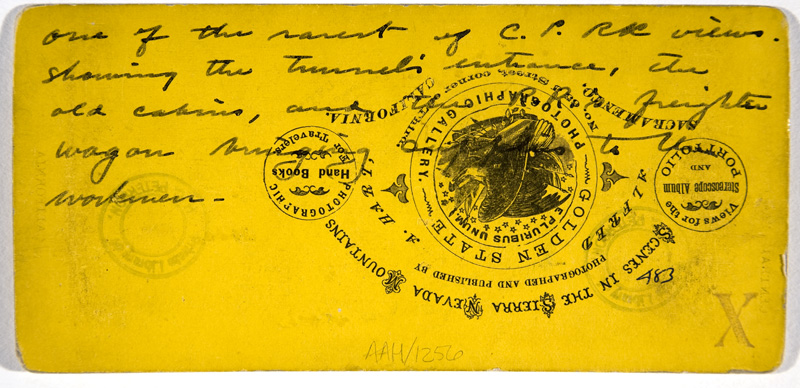 one of the rarest of C. P. RR views.
showing the tunnel's entrance, the
old cabins, and the freighter
wagon bringing supplies to the
workmen -
SCENES IN THE SIERRA NEVADA MOUNTAINS
PHOTOGRAPHED AND PUBLISHED BY
ALFRED A. HART,
GOLDEN STATE
PHOTOGRAPHIC GALLERY.
E PLURIBUS UNUM
Street, corner
SACRAMENTO, CALIFORNIA.
Views for the
Stereoscope Album
AND
PORTFOLIO
PHOTOGRAPHIC
Hand Books
For Travelers
483
X
AAH/1256